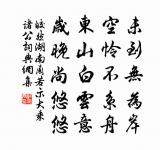 未到無為岸
空怜不系舟
東山白雲意
歲晚尚悠悠
皎然湖南蘭若示大乘
諸公詞典網集